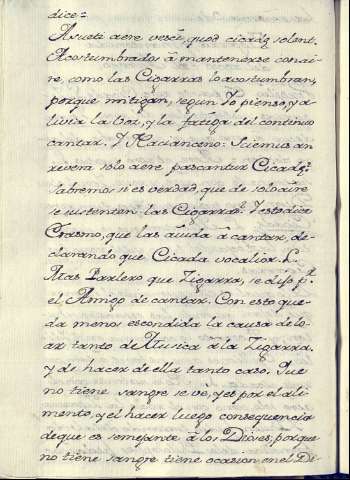 dice=
Asueti aere vesci quod cicadę solent.
Acostumbrados â mantenerse con ai-
re, como las Cigarras lo acostumbran,
porque mitigan, segun Yo pienso, y a-
livia la Voz, y la fatiga del continuo
cantar. Y Nacianceno: Sciemus an
revera solo aere pascantur Cicadę:
Sabremos si es verdad, que de solo aire
se sustentan las Cigarras. Y esto dice
Erasmo, que las aiuda â cantar, de-
clarando que Cicada vocalior. L.
Mas Parlero que Zigarra, se dijo pr.
el Amigo de cantar. Con esto que-
da menos escondida la causa de lo-
ar tanto de Musica â la Zigarra.
y de hacer de ella tanto caso. Que
no tiene sangre se vè, y es por el ali-
mento, y el hacer luego consequencia
de que es semejante â los Dioses, porque
no tiene sangre tiene ocasion en el Di-